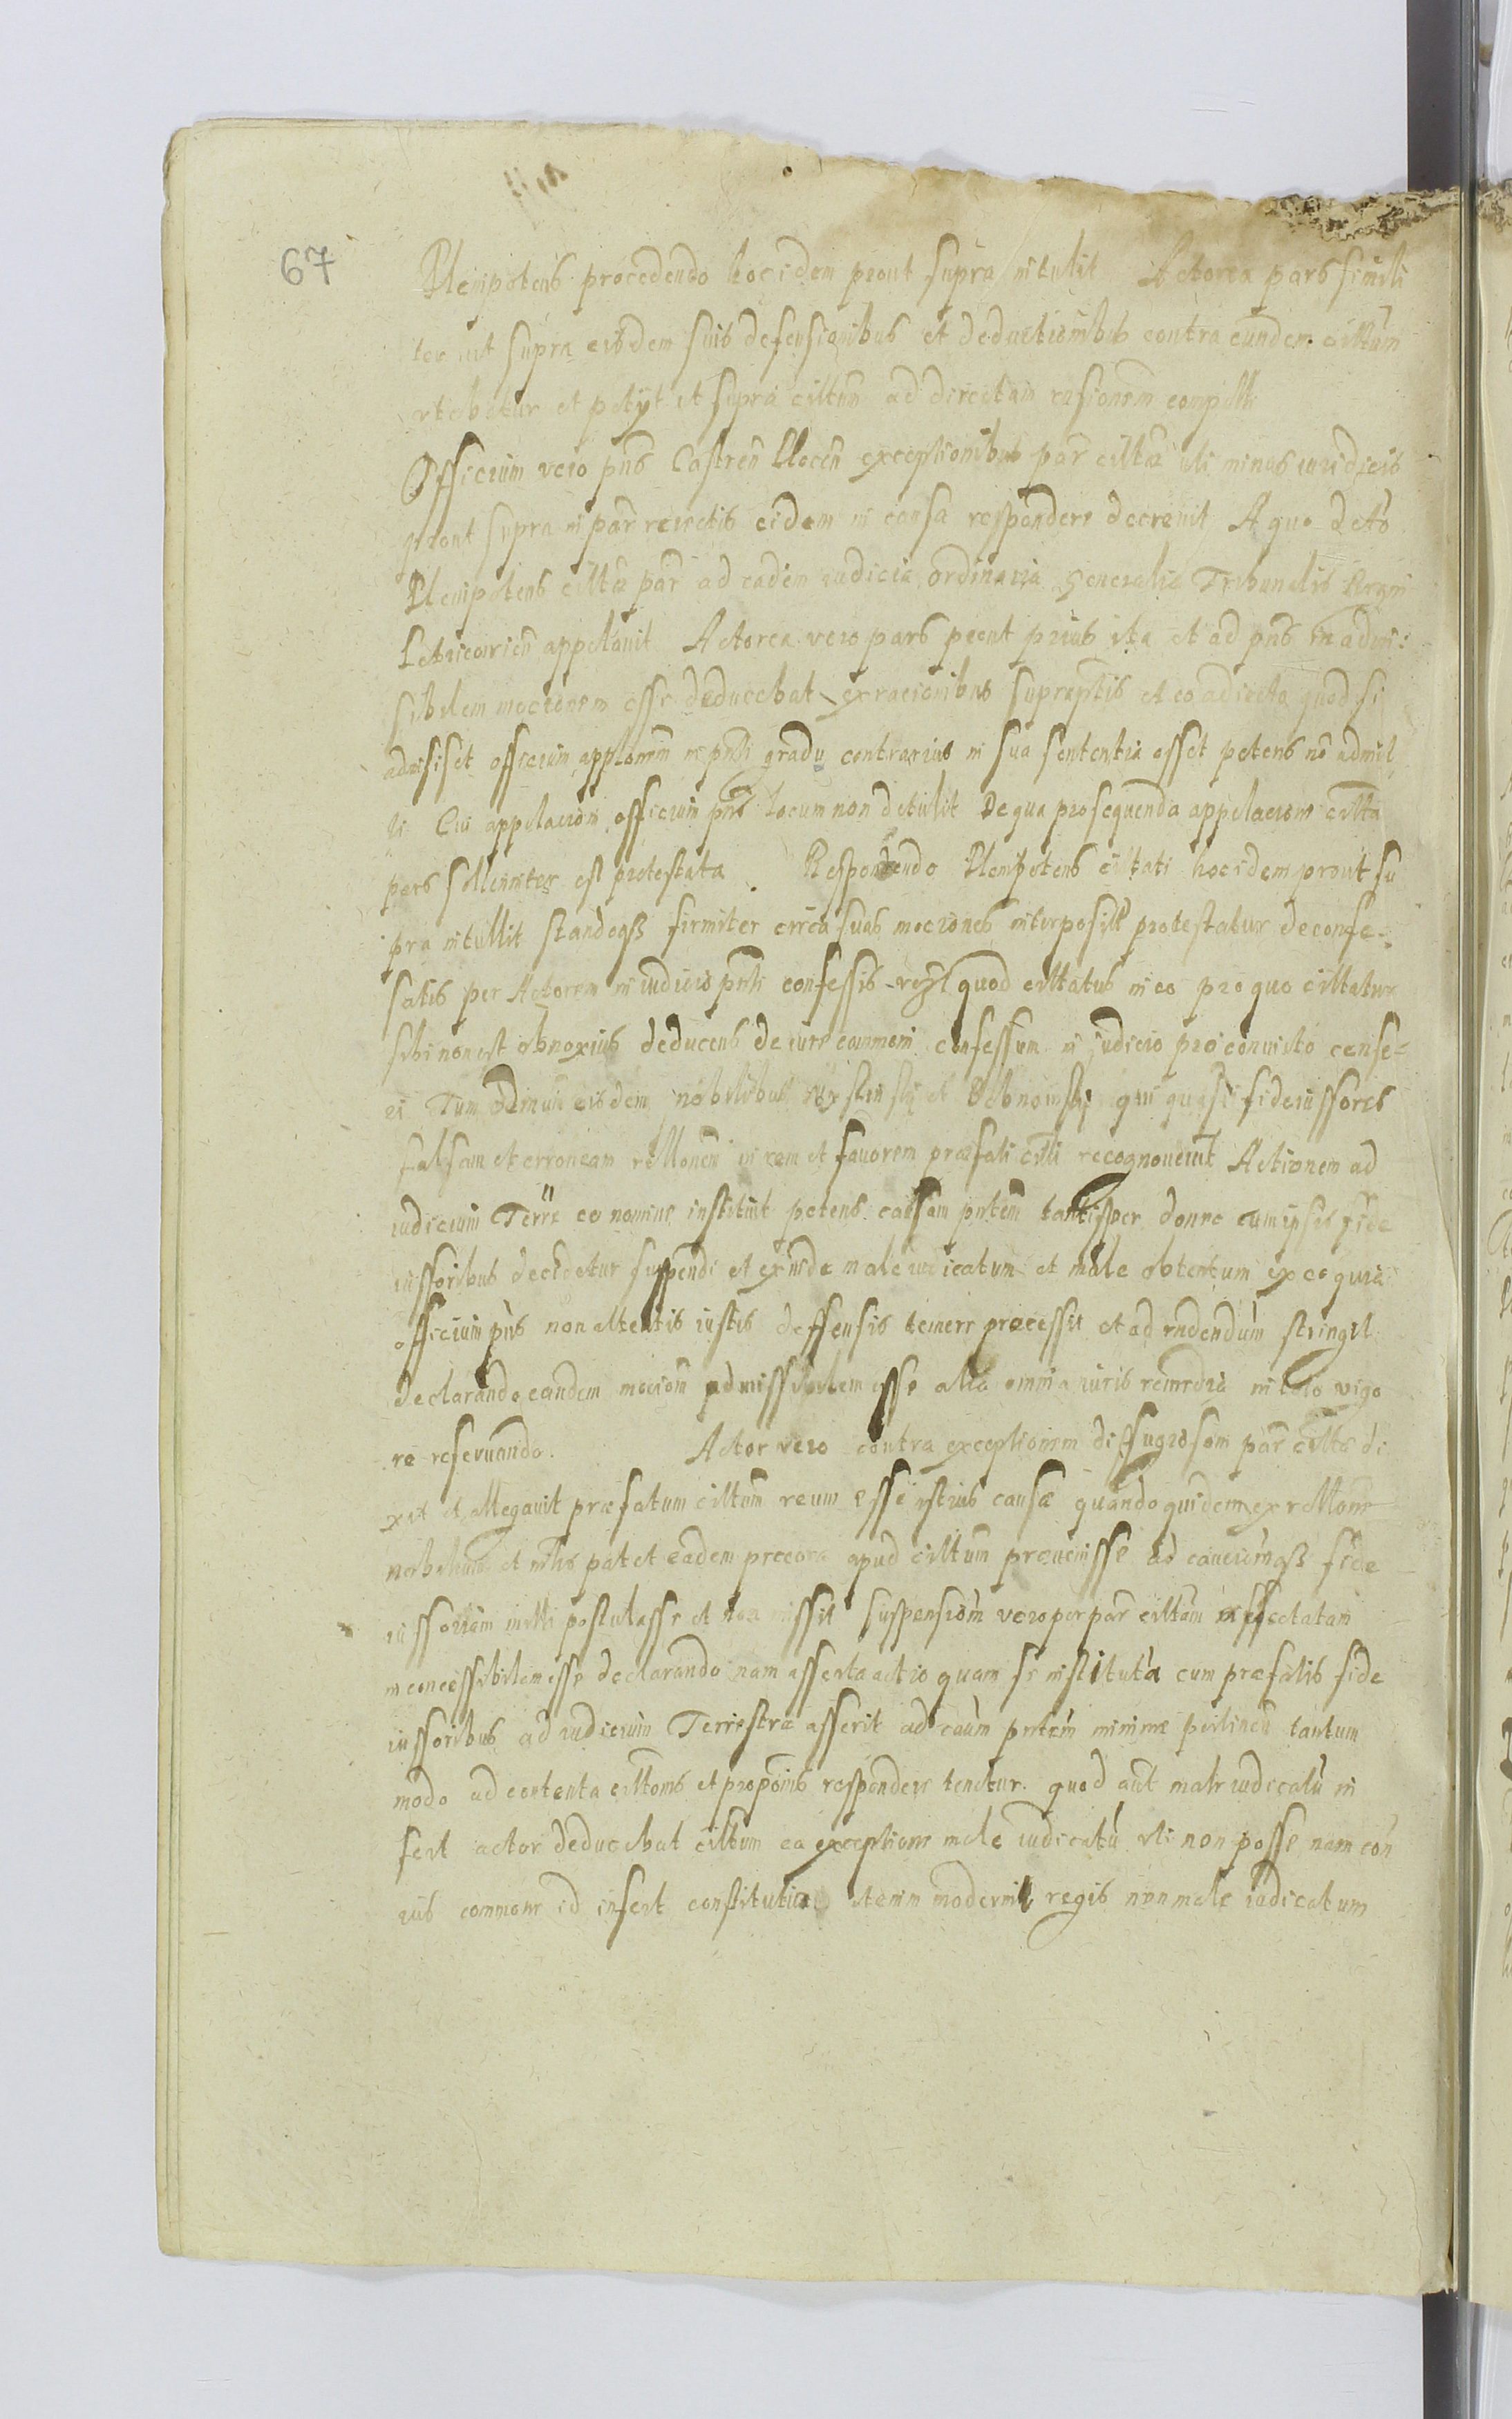 67
Plenipotens procedendo hoc idem prout supra intulit Actorea pars simili
ter ut supra eisdem suis defensionibus et deductionibus contra eundem cittum
utebatur et petyt ut supra cittum ad directam rnsionem compelli
Officium vero pns Castren Plocen exceptionibus par citta uti minus iuridicis
prout supra in par reiectis eidem in causa respondere decrevit A quo decto
Plenipotens citta par ad eadem iudicia ordinaria generalia Tribunalis Regni
Petricovien appelavit Actorea vero pars prout prius ita et ad pns in admi:
sibilem mocionem esse deducebat ex racionibus suprasptis et eo adiecto quod si
admisiset officium applonem in pnti gradu contrarius in sua sententia esset petens no admit
ti Cui appelacioni officium pns locum non detulit De qua prosequenda appelacione citta
pars sollenniter est protestata . Respondendo Plenipotens cittati hoc idem prout su
pra intullit standoqß firmiter circa suas mociones interposit protestatur de confe-
satis per Actorem in iudicio pnti confessis quod cittatus in eo pro quo cittatur
sibi non est obnoxius deducens de iure communi confessum in judicio pro convicto cense-
ri Tum eisdem nobilibus et qui quasi fideiussores
falsam et erroneam rellonem in rem et favorem praefati citti recognoverunt Actionem ad
iudicium Terre eo nomine instituit petens causam pntem tantisper donec cum ipsis fide
iussoribus decidetur suspendi et exinde male iudicatum et male obtentum ex eo quia
officium pns non attentis iustis deffensis temere processit et ad rndendum stringit
declarando eandem mocionem admissibilem esse alia omnia iuris remedia in toto vigo
re reservando. Actor vero contra exceptionem diffugiosam par citta di
xit et allegavit praefatum cittum reum esse istius causae quandoquidem ex rellone
nobilium et mtris patet eadem precora apud cittum praevenisse ad caucionemqß fide
iussoriam postulasse et non suspensionem vero per par cittam affectatam
inconcessibilem esse declarando nam asserta actio quam se instituta cum praefatis fide
iussoribus ad iudicium Terrestre asserit ad caum pntem minime pertinen tantum
modo ad contenta cittonis et proponis respondere tenetur. quod aut male iudicatu in
fert actor deducebat cittum ea exceptione male iudicatu uti non posse nam con
ius commune id infert constitutia etenim moderni regis non male iudicatum